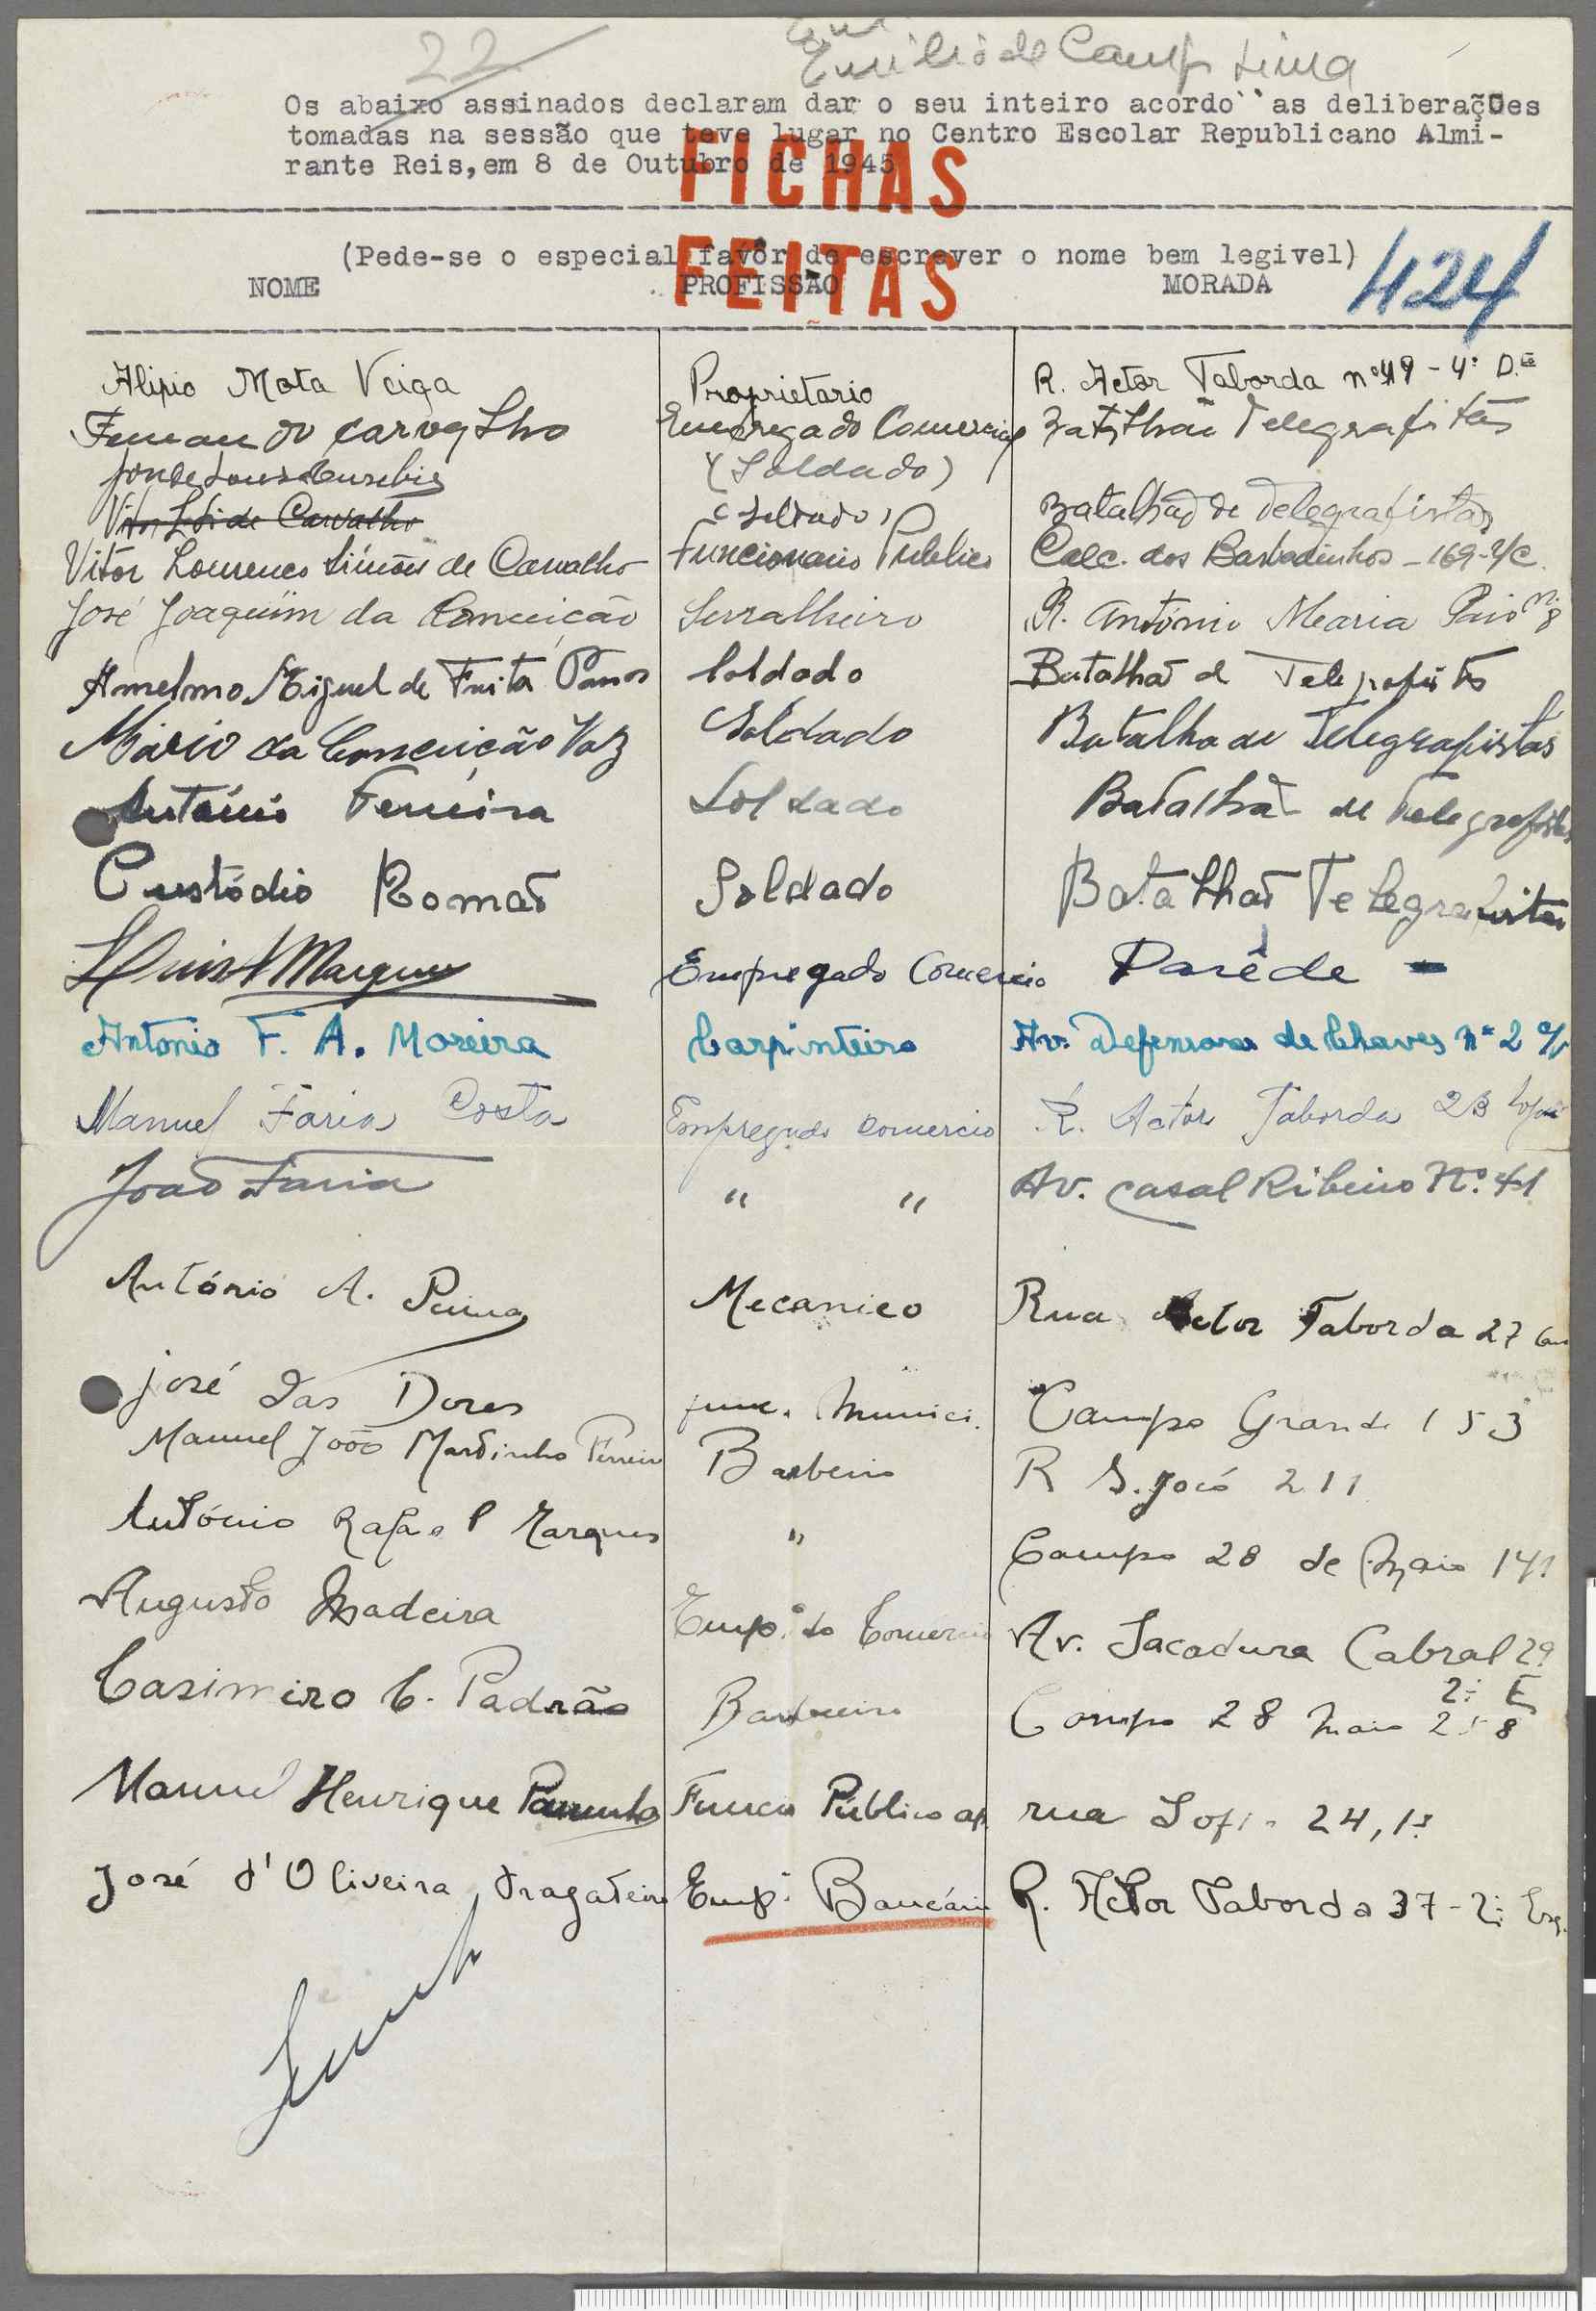 22
Emilio de Camp Lima
Os abaixo assinados declaram dar o seu inteiro acordo`` as deliberações
tomadas na sessão que teve lugar no Centro Escolar Republicano Almi-
rante Reis, em 8 de Outubro de 1945
FICHAS
FEITAS
(Pede-se o especial favôr de escrever o nome bem legivel)
424
NOME PROFISSÃO MORADA
Alipio Mota Veiga Proprietario R. Actor Taborda nº 49 - 4º D.to
Fernando Carvalho Empregado Comercial Batalhão Telegrafistas
(Soldado)
Vitor de Carvalho (Soldado) Batalhão de Telegrafistas
Vitor Lourenco Simões de Carvalho Funcionario Publico Calc. dos Barbadinhos - 169 - r/c.
José Joaquim da Conceição Serralheiro R. António Maria Pais nº 8
Anselmo Miguel de Soldado Batalhão de Telegrafistas
Mário da Conceição Vaz Soldado Batalha de Telegrafistas
António Ferreira Soldado Batalhão de Telegrafistas
Custódio Romão Soldado Batalhão Telegrafistas
Luis Marques Empregado Comercio Parêde -
Antonio F. A. Moreira Carpinteiro Av. Defensores de Chaves nº 2
Manuel Faria Costa Empregado comercio R. Actor Taborda 23 loja
João Faria " " Av. Casal Ribeiro Nº. 41
António A. Mecanico Rua Actor Taborda 27
José das Dores func. Munici. Campo Grande 153
Manuel João Martinho Barbeiro R S. José 211
António Rafael Marques " Campo 28 de Maio 141
Augusto Madeira Emp.º do Comercio Av. Sacadura Cabral 29
2º E
Casimiro C. Padrão Barbeiro Campo 28 Maio 258
Manuel Henrique Funcio Público ap. rua Sofia 24, 1º
José d'Oliveira Fragateiro Emp.º Bancário R. Actor Taborda 37 - 2º Esq.